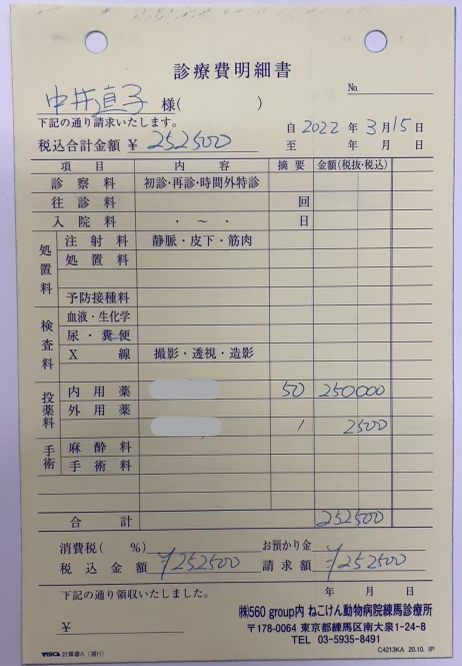 診療費明細書
No.
中井直子 様( )
下記の通り請求いたします。
自 2022 年 3 月 15 日
税込合計金額 ¥ 252500
至 年 月 日
項目 内容 摘要 金額(税抜・税込)
診察料 初診・再診・時間外特診
往診料 回
入院料 ・ ~ ・ 日
処置料
注射料 静脈・皮下・筋肉
処置料
予防接種料
検査料
血液・生化学
尿・糞便
X線 撮影・透視・造影
投薬料
内用薬 50 250000
外用薬
1 2500
手術
麻酔料
手術料
合計 252500
消費税( %) お預かり金
税込金額 ¥252500 請求額 ¥252500
下記の通り領収いたしました。 年 月 日
¥
㈱560 group内 ねこけん動物病院練馬診療所
〒178-0064 東京都練馬区南大泉1-24-8
TEL 03-5935-8491
VISCA 計算書A(個H) C4213KA 20.10. IP